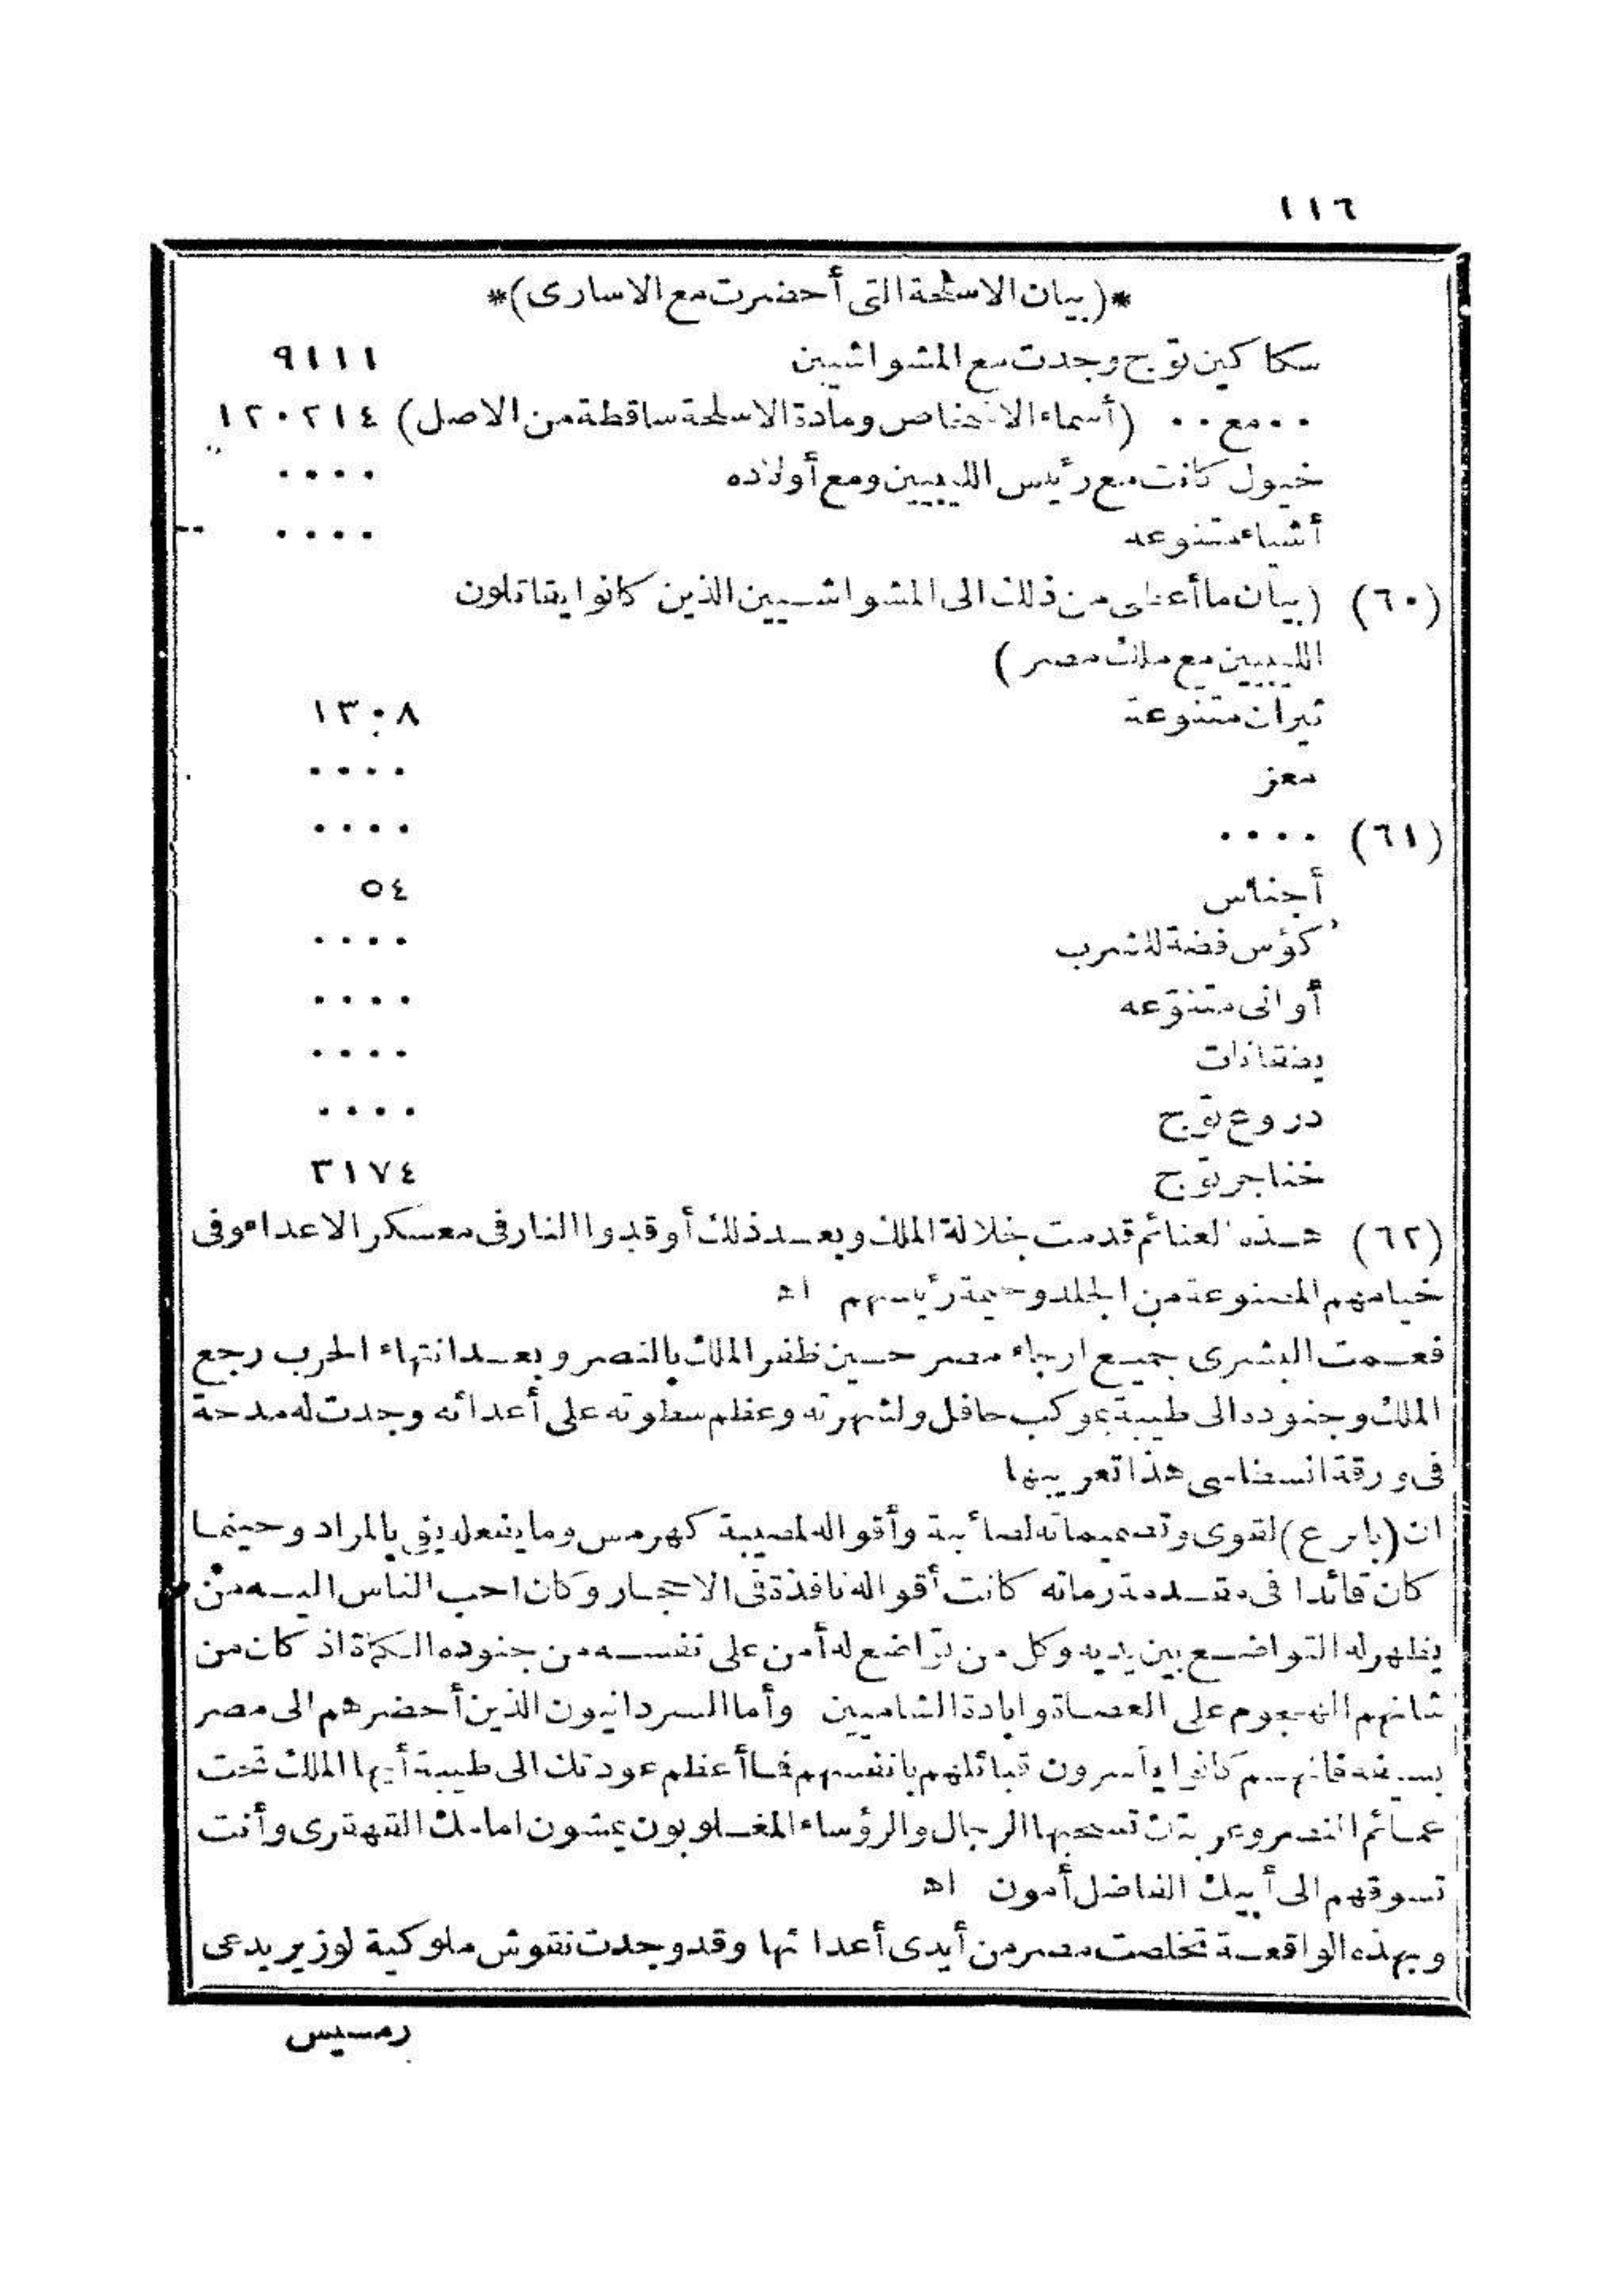 ١١٦
*(بيان الاسلحة التى أحضرت مع الاسارى)*
سكاكين توّج وجدت مع المشواشيين ٩١١١
٠٠ مع ٠٠ (أسماء الاشخاص ومادة الاسلحة ساقطة من الاصل) ١٢٠٢١٤
خيول كانت مع رئيس الليبيين ومع أولاده ٠٠٠٠
أشياء متنوعه ٠٠٠٠
(٦٠) (بيان ما أعطى من ذلك الى المشواشيين الذين كانوا يقاتلون
الليبيين مع ملك مصر)
ثيران متنوعة ١٣٠٨
معز ٠٠٠٠
(٦١) ٠٠٠٠ ٠٠٠٠
أجناس ٥٤
كؤس فضة للشرب ٠٠٠٠
أوانى متنوّعه ٠٠٠٠
٠٠٠٠
دروع توّج ٠٠٠٠
خناجر توّج ٣١٧٤
(٦٢) هذه الغنائم قدمت لجلالة الملك وبعد ذلك أوقدوا النار فى معسكر الاعداء وفى
خيامهم المصنوعة من الجلد وخيمة رئيسهم اه
فعمت البشرى جميع ارجاء مصر حين ظفر الملك بالنصر وبعد انتهاء الحرب رجع
الملك وجنوده الى طيبة بموكب حافل ولشهرته وعظم سطوته على أعدائه وجدت له مدحة
فى ورقة انسطاسى هذا تعريبها
ان (باىرع) لقوى وتصميماته لصائبة وأقواله لمصيبة كهرمس وما يفعله يفى بالمراد وحينما
كان قائدا فى مقدمة رماته كانت أقواله نافذة فى الاحجار وكان احب الناس اليه من
يظهر له التواضع بين يديه وكل من تواضع له أمن على نفسه من جنوده الكماة اذ كان من
شانهم الهجوم على العصاة وابادة الشاميين وأما السردانيون الذين أحضرهم الى مصر
بسيفه فانهم كانوا يأسرون قبائلهم بانفسهم فما أعظم عودتك الى طيبة أيها الملك تحت
عمائم النصر وعربتك تسحبها الرجال والرؤساء المغلوبون يمشون امامك القهقرى وأنت
تسوقهم الى أبيك الفاضل أمون اه
وبهذه الواقعة تخلصت مصر من أيدى أعدائها وقد وجدت نقوش ملوكية لوزير يدعى
رمسيس